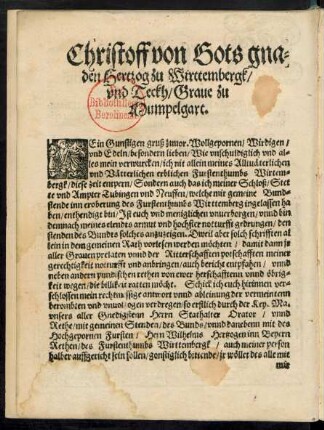 Christoff von Gots gna-
den Hertzog zu Wirttembergk/
vnd Teckh/ Graue zu
Mumpelgart.
MEin Gunstigen gruß zuuor. Wolgepornen/ Wirdigen/
vnd Edeln/ besondern lieben/ Wie vnschuldigklich vnd al-
les mein verwurcken/ ich nit allein meines Allinäterlichen
vnd Vätterlichen erblichen Furstenthumbs Wirtem-
bergk/ diese zeit emporn, Sondern auch das ich meiner Schloß/ Stet
te vnd Ampter Tubingen vnd Neuffen/ welche mit gemeine Bund-
stende im eroberung des Furstenthumbs Wirttemberg ingelassen ha
ben/ enthendigt bin/ Ist euch vnd meniglichen vnuerborgen/ vnnd bin
demnach meines elends armut vnd hochster noturfft gedrungen/ den
stenden des Bunds solchs anzuzeigen. Dweil aber solch schrifften al
lein in dem gemeinen Rath vorlesen werden möchten/ damit dann jr
aller Grauen prelaten vnd der Ritterschafften potschafften meiner
gerechtigkeit noturfft vnd anbringen/ auch bericht entpfahen/ vnnd
neben andern pundtischen rethen vorewer herschafftenn vnnd öbrig-
keit wegen/ die billikeit ratten möcht. Schick ich euch hierinnen ver-
schlossen mein rechtmässige antwort vnd ableinung der vermeintenn
beromdten vnd vnuolzogen verdregen so erstlich durch der Key. Ma.
vnsers aller Gnedigsten Herrn Stathalter Orator/ vnnd
Rethe/ mit gemeinen Stenden/ des Bunds/ vnnd danebenn mit des
Hochgepornen Fursten/ Hern Wilhelms Hertzogen inn Beyern
Rethen/ des Furstenthumbs Wirttembergk/ auch meiner person
halber auffgericht sein sollen/ gonstiglich bittende/ jr wöllet des alle mit
mir